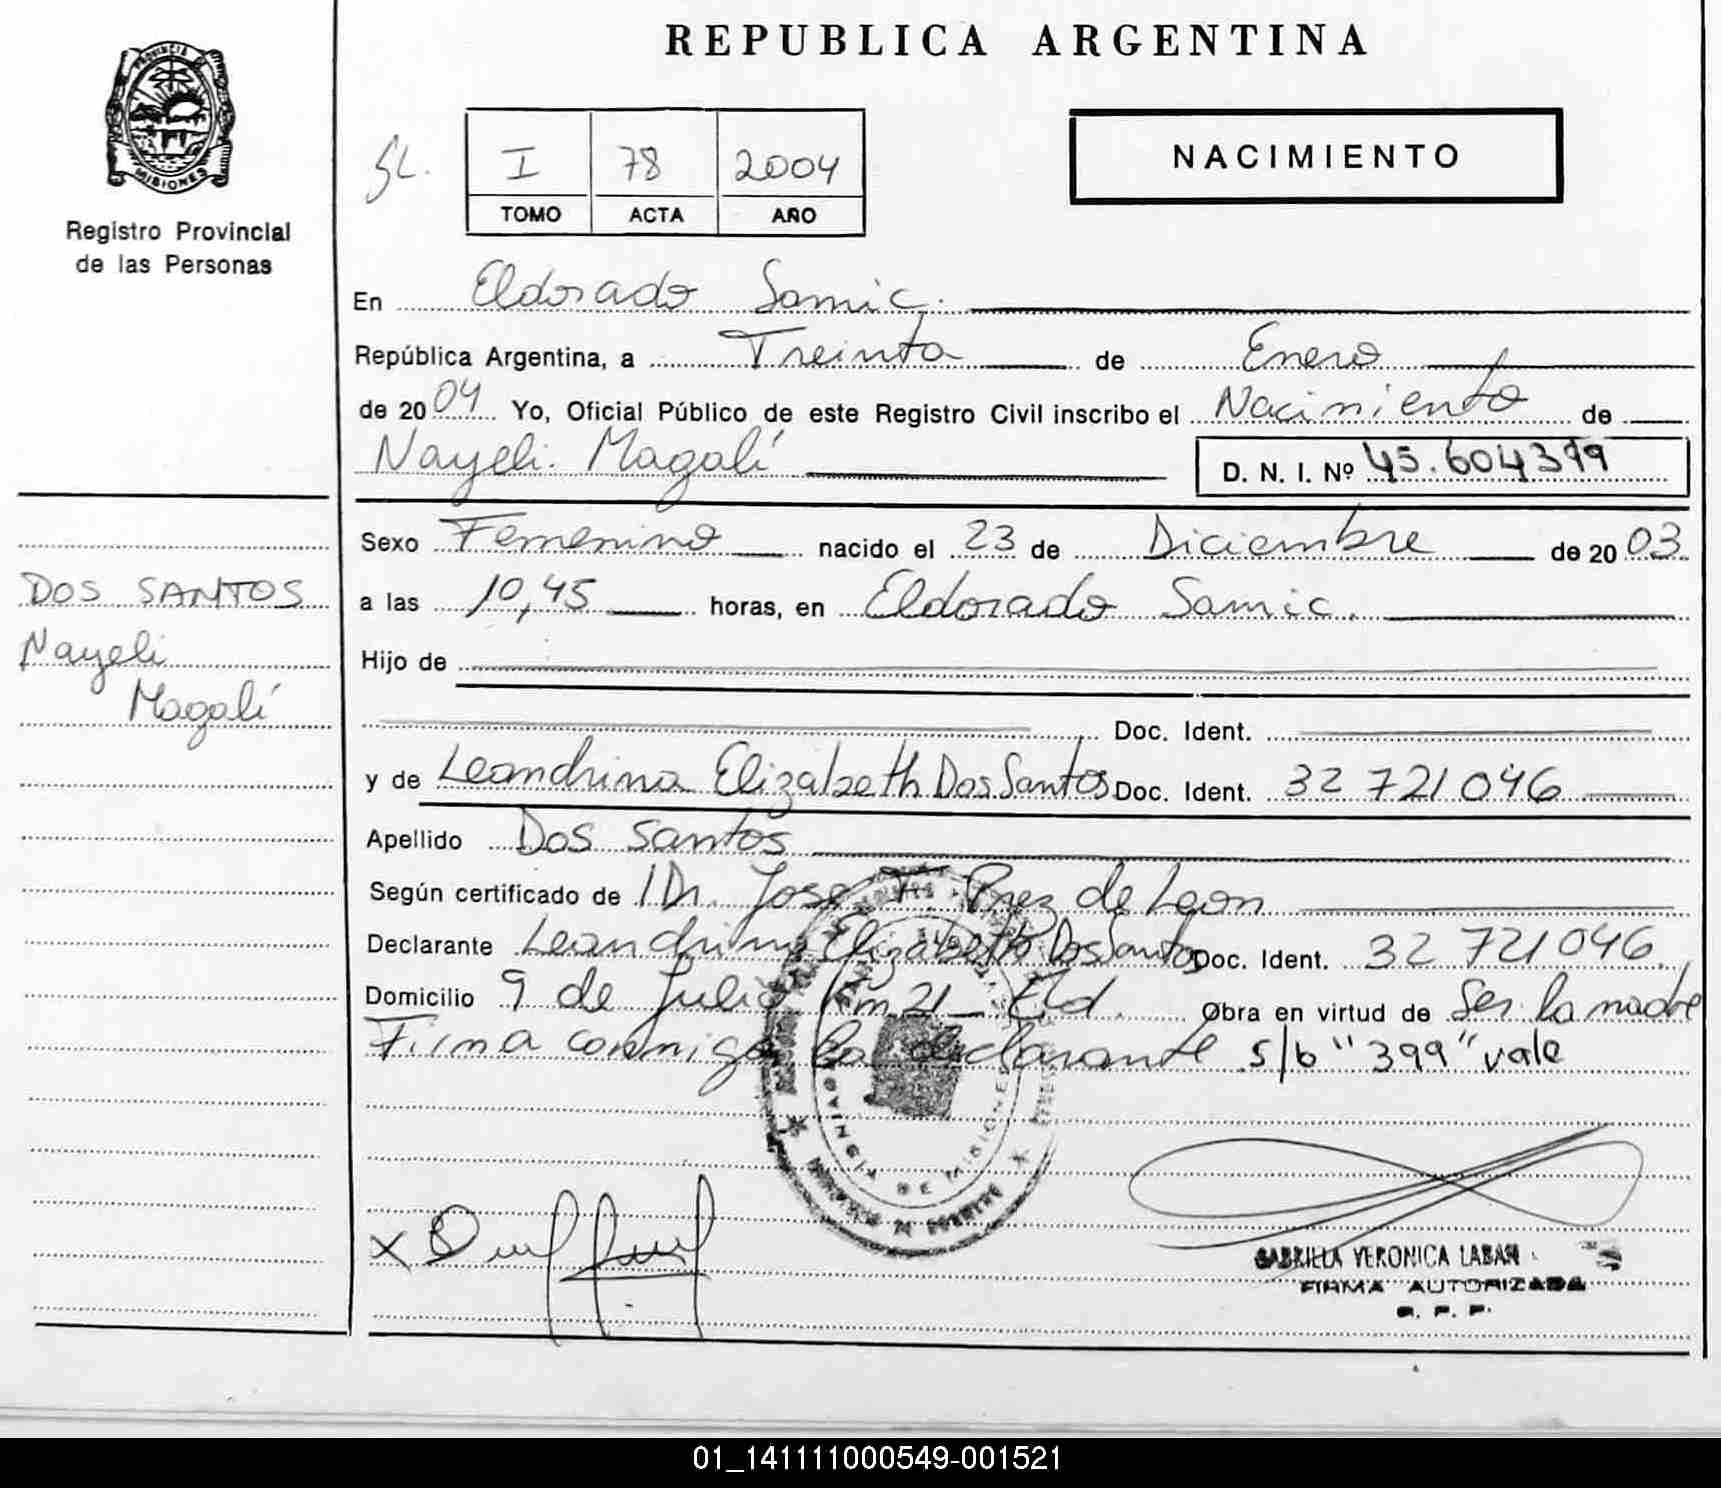 REPUBLICA ARGENTINA
PROVINCIA DE
MISIONES
Registro Provincial
de las Personas
I 78 2004
TOMO ACTA AÑO
NACIMIENTO
En Eldorado Samic.
República Argentina, a Treinta de Enero
de 2004 Yo, Oficial Público de este Registro Civil inscribo el Nacimiento de
Nayeli Magalí D. N. I. Nº 45.604399
Sexo Femenino nacido el 23 de Diciembre de 2003
DOS SANTOS
Nayeli
Magalí
a las 10,45 horas, en Eldorado Samic.
Hijo de
Doc. Ident.
y de Leandrina Elizabeth Dos Santos Doc. Ident. 32 721 046
Apellido Dos Santos
Según certificado de Dr. Jose de Leon
Declarante Leandrina Elizabeth Dos Santos Doc. Ident. 32 721 046
Domicilio 9 de Julio Km 21 Eld. Obra en virtud de Ser la madre
Firma conmigo la declarante s/b "399" vale
PROVINCIA DE MISIONES
GABRIELA VERONICA LABAN
FIRMA AUTORIZADA
R. P. P.
01_141111000549-001521